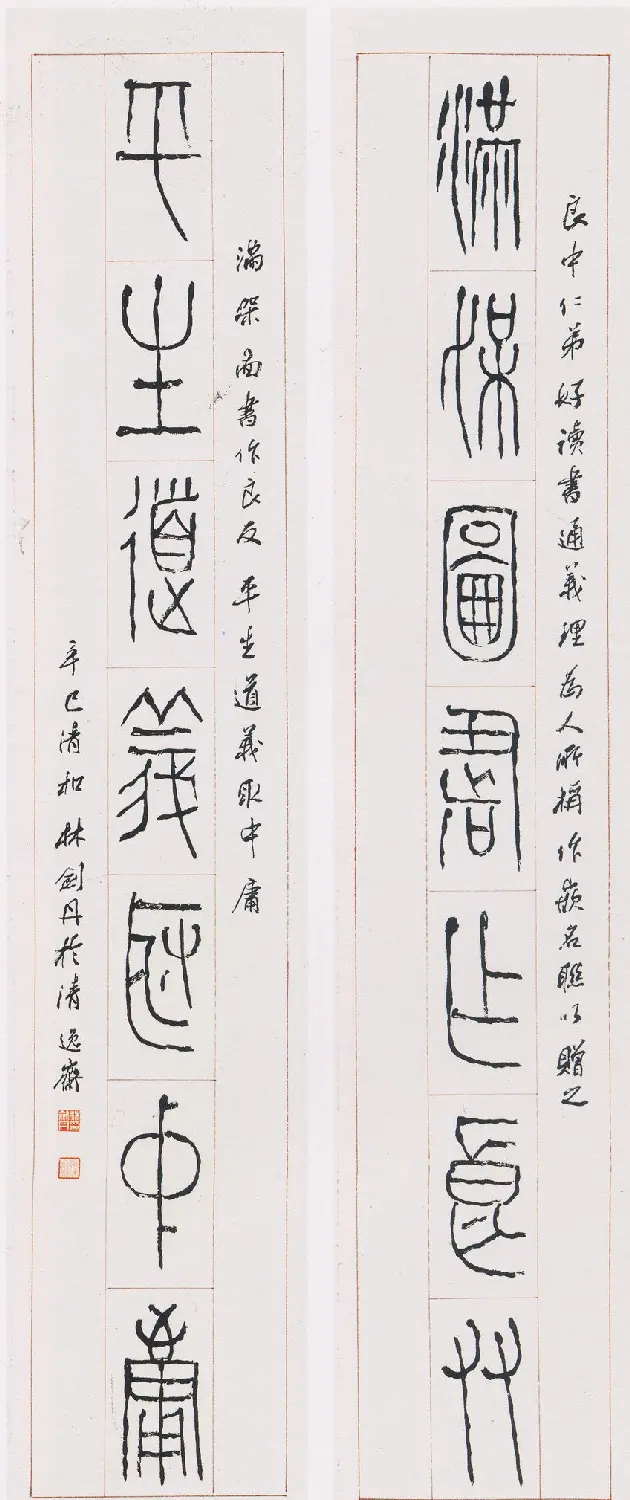 良中仁弟好讀書通義理為人所稱作嵌名聯以贈之
滿架圖書作良友
滿架圖書作良友平生道義取中庸
平生道義取中庸
辛巳清和林劍丹於清逸齋